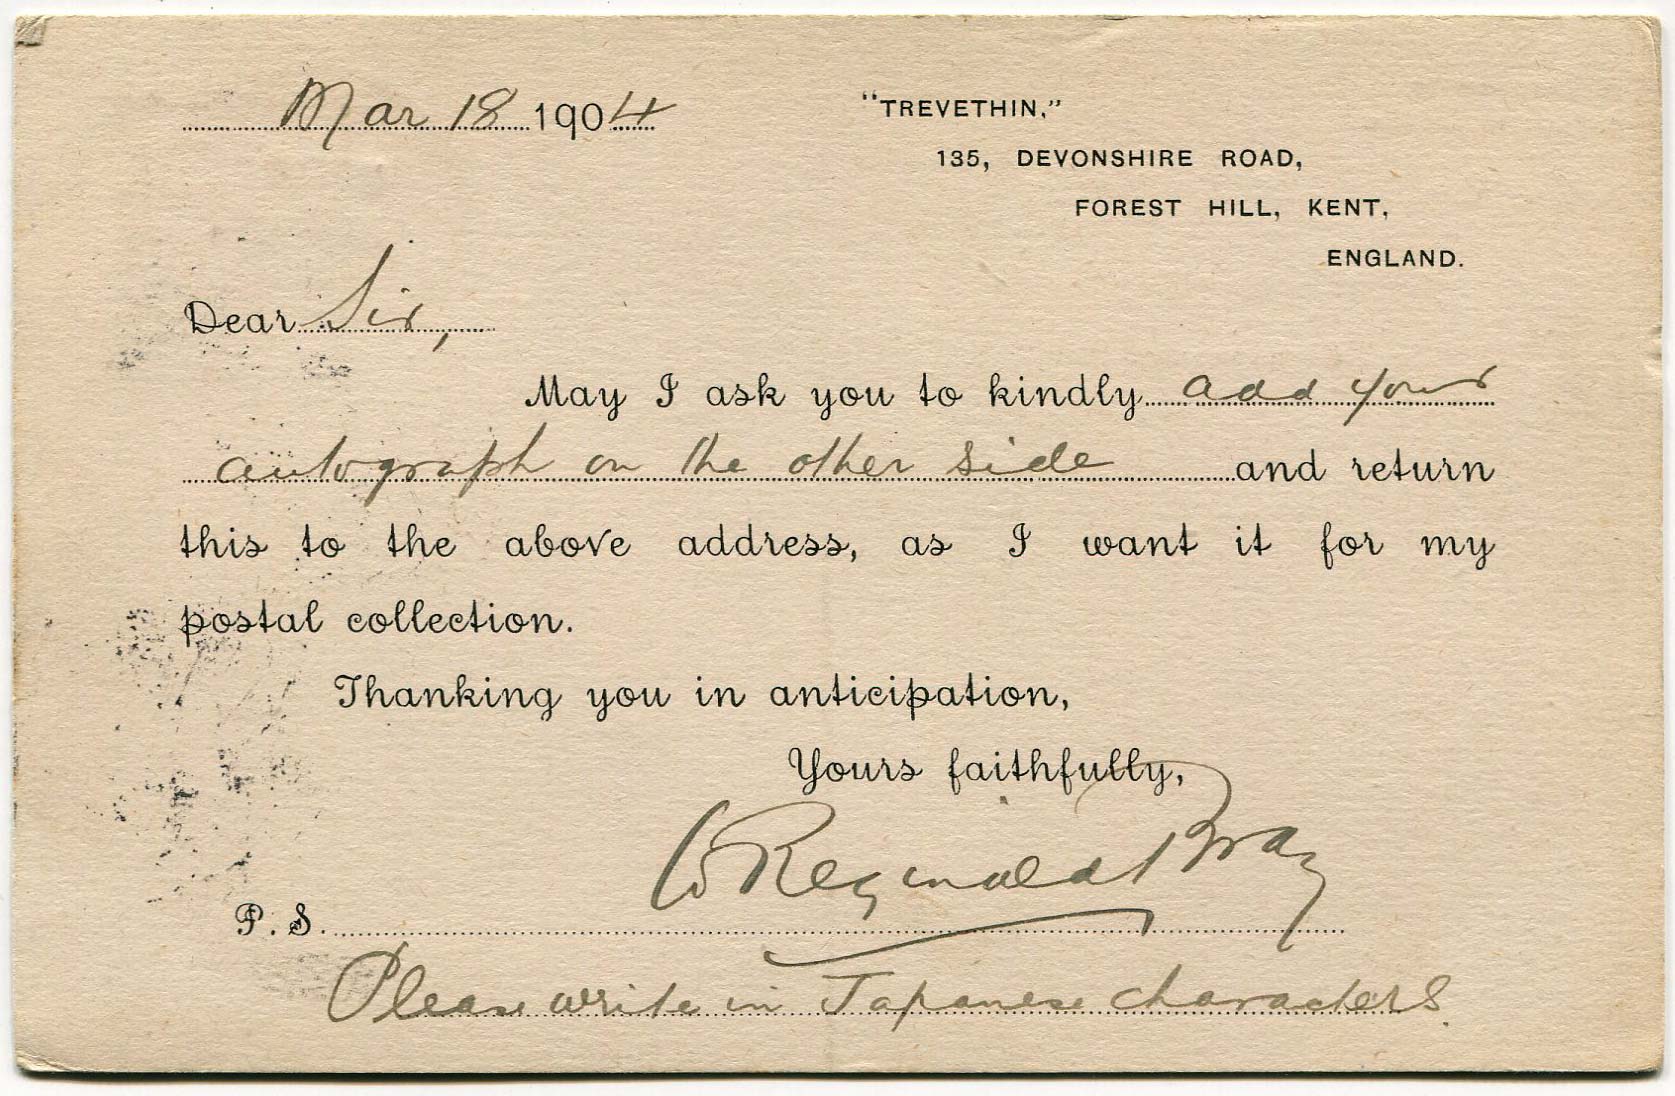 Mar 18 1904
"TREVETHIN,"
135, DEVONSHIRE ROAD,
FOREST HILL, KENT,
ENGLAND.
Dear Sir,
May I ask you to kindly add your
autograph on the other side and return
this to the above address, as I want it for my
postal collection.
Thanking you in anticipation,
Yours faithfully,
W Reginald Bray
P. S.
Please write in Japanese characters.